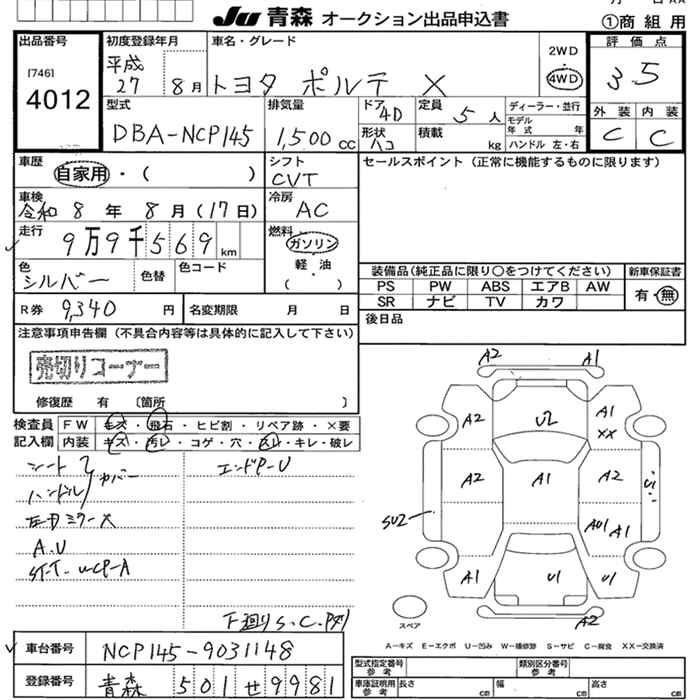 Ju 青森 オークション出品申込書
①商組用
出品番号
[746]
4012
初度登録年月
平成
27 8月
車名・グレード
トヨタ ポルテ X
2WD
4WD
評価点
3.5
外装 内装
C C
型式
DBA-NCP145
排気量
1,500 cc
ドア
4D
形状
ハコ
定員
5人
積載
kg
ディーラー・並行
モデル
年式 年
ハンドル 左・右
車歴
自家用・( )
シフト
CVT
セールスポイント(正常に機能するものに限ります)
車検
令和 8 年 8 月(17日)
冷房
AC
走行
9万9千569km
燃料
ガソリン
軽・油
( )
色
シルバー
色替
色コード
装備品(純正品に限り○をつけてください)
新車保証書
PS PW ABS エアB AW
SR ナビ TV カワ
有・無
R券 9,340 円
名変期限 月 日
後日品
注意事項申告欄(不具合内容等は具体的に記入して下さい)
売切りコーナー
修復歴 有 〔箇所 〕
検査員
記入欄
FW キズ・飛石・ヒビ割・リペア跡・×要
内装 キズ・汚レ・コゲ・穴・スレ・キレ・破レ
シート
カバー
ハンドル
左Dミラー
A.U
エンドP-U
下廻りS.C.
A2 A1
A2 U2 A1
XX
A2 A1 A2
SU2
A1
A1 U1 U1
A2
スペア
A-キズ E-エクボ U-凹み W-補修跡 S-サビ C-腐食 XX-交換済
車台番号
NCP145-9031148
登録番号
青森 501 せ 9981
型式指定番号
参考
類別区分番号
参考
車庫証明用
参考
長さ cm
幅 cm
高さ cm